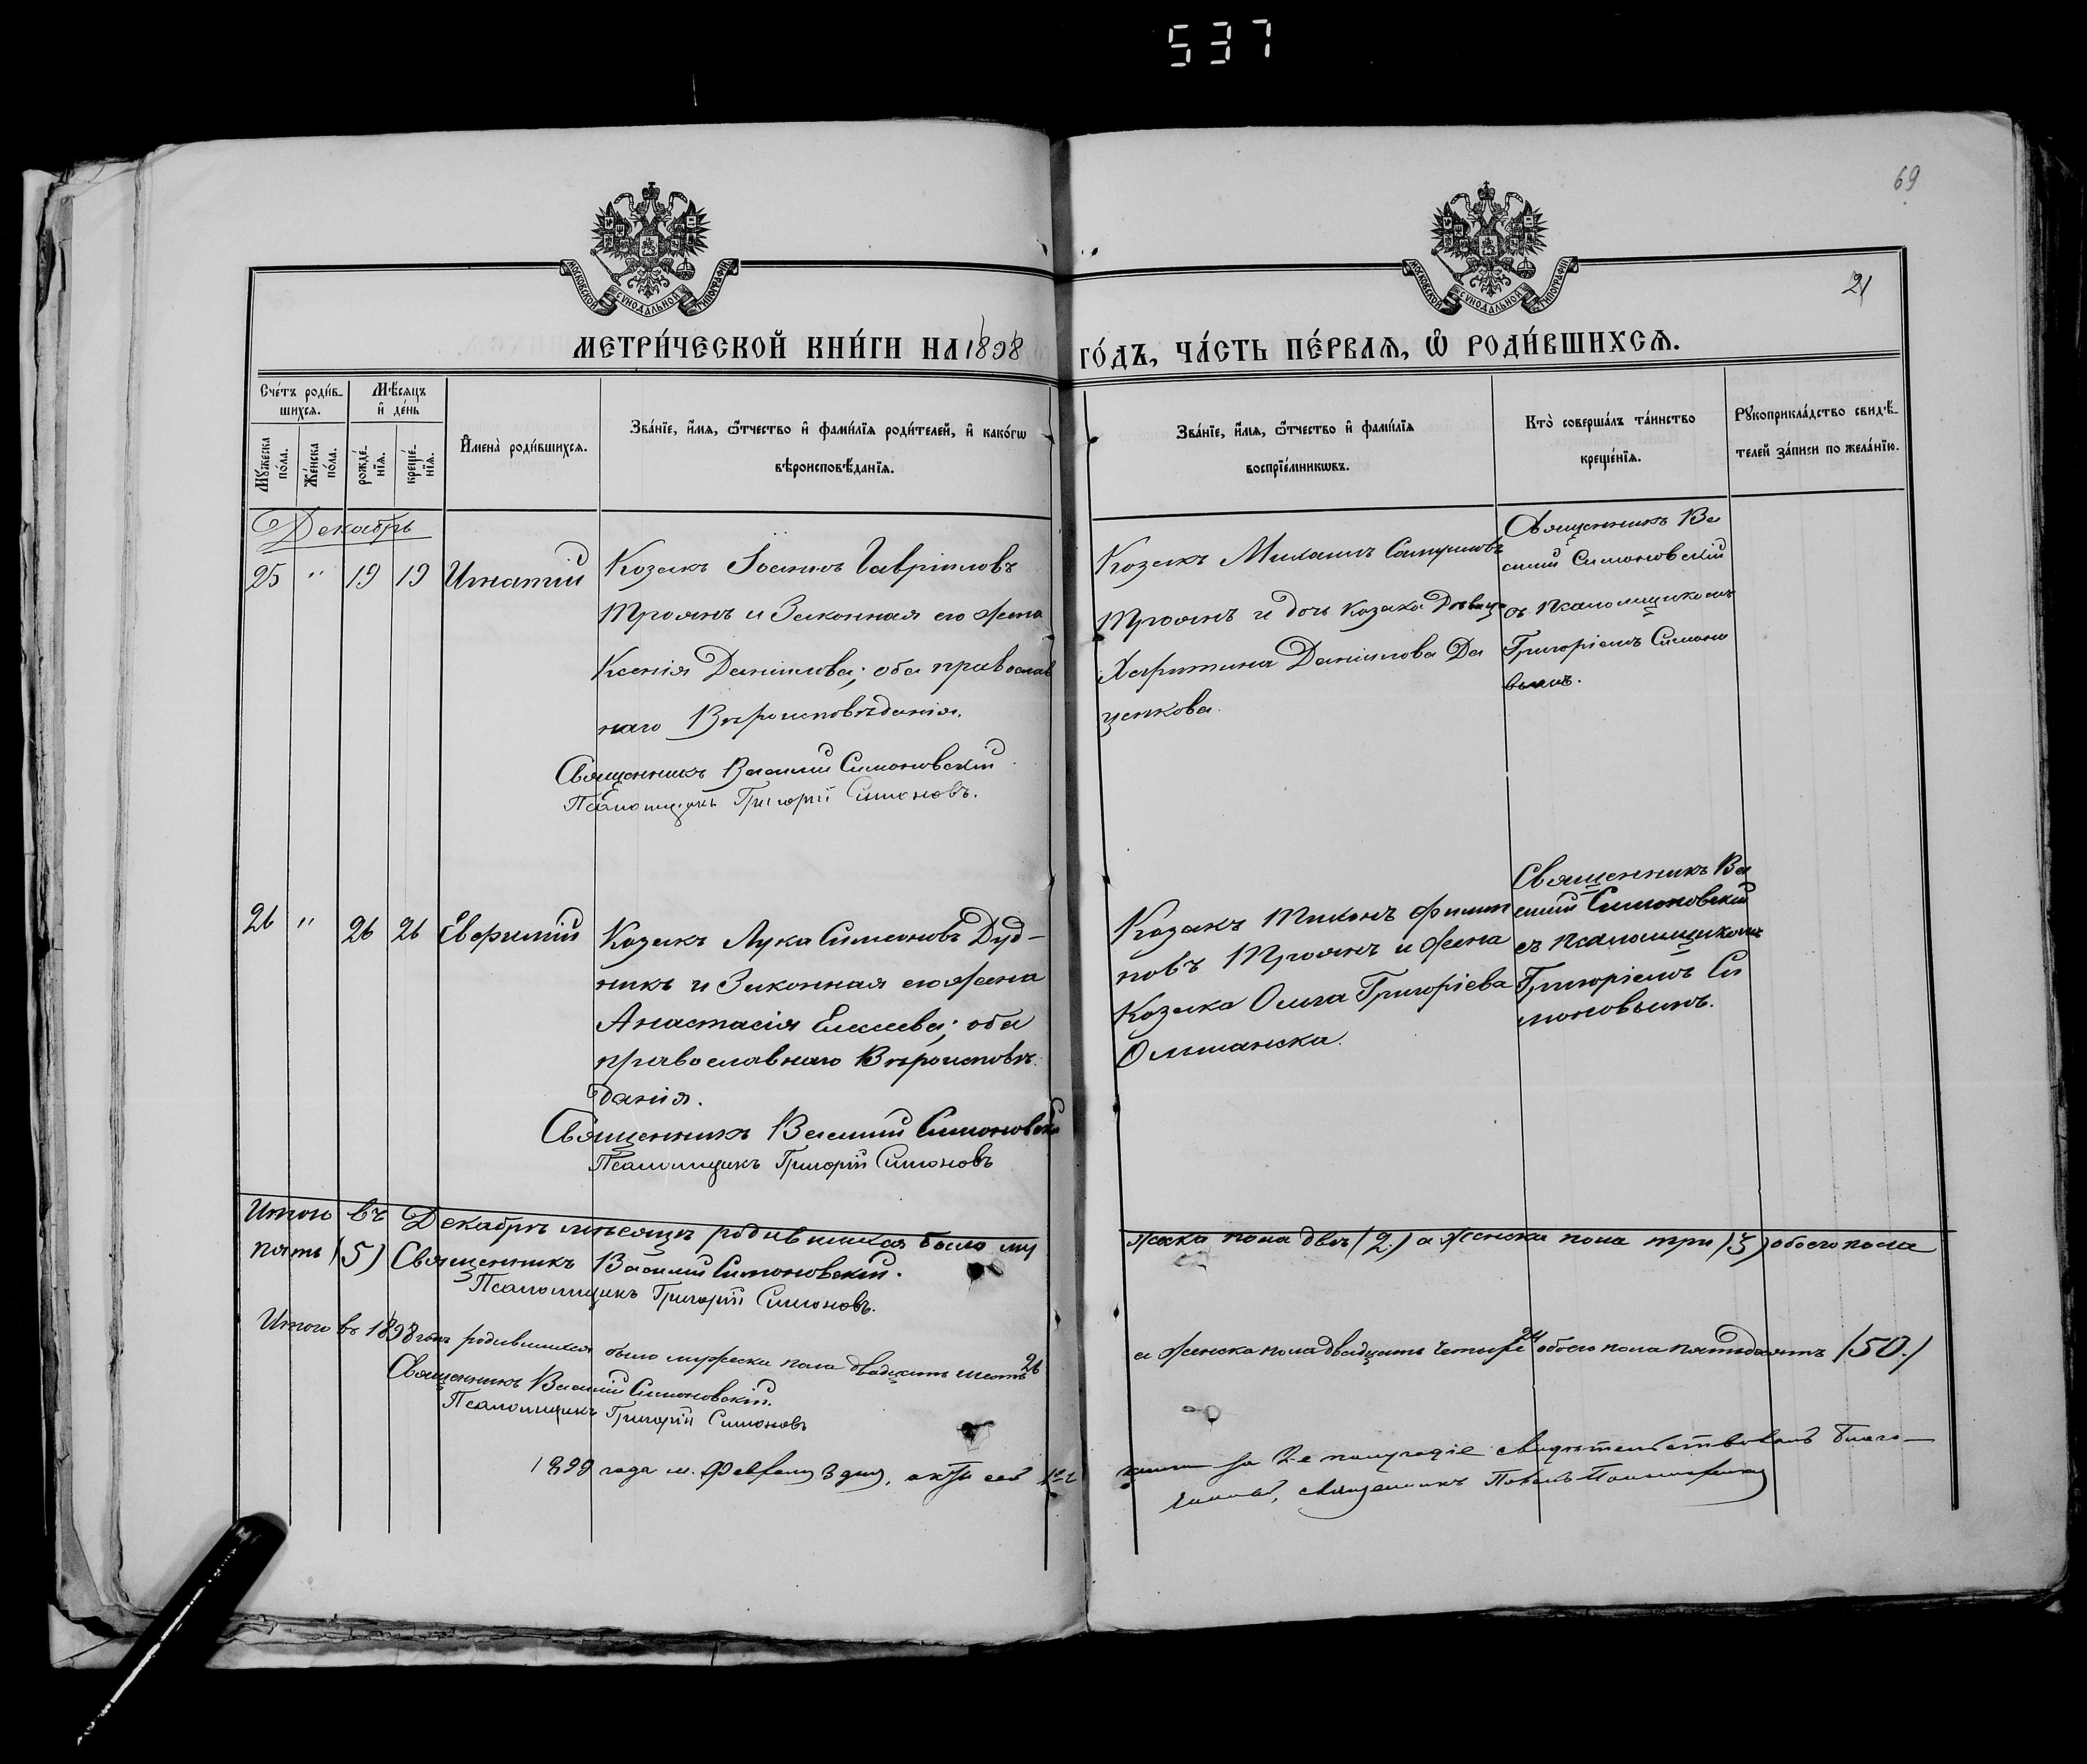 537
69
21
МОСКОВСКОЙ СѴНОДАЛЬНОЙ ТИПОГРАФІИ
МОСКОВСКОЙ СѴНОДАЛЬНОЙ ТИПОГРАФІИ
МЕТРИ́ЧЕСКОЙ КНИ́ГИ НА 1898 ГО́ДЪ, ЧА́СТЬ ПЕ́РВАѦ, Ѡ҆ РОДИ́ВШИХСѦ.
Сче́тъ роди́в-
шихсѧ.
Мѣ́сѧцъ
и҆ де́нь
Мꙋ́жеска
по́ла.
Же́нска
по́ла.
рожде́-
нїѧ.
креще́-
нїѧ.
И҆мена̀ роди́вшихсѧ.
Зва́нїе, и҆́мѧ, ѻ҆́тчество и҆ фами́лїѧ роди́телей, и҆ како́гѡ
вѣроисповѣ́данїѧ.
Зва́нїе, и҆́мѧ, ѻ҆́тчество и҆ фами́лїѧ
воспрїе́мникѡвъ.
Кто̀ соверша́лъ та́инство
креще́нїѧ.
Рꙋкоприкла́дство свидѣ́-
телей за́писи по жела́нїю.
Декабрь
25 " 19 19 Игнатій
Козакъ Іоаннъ Гавріиловъ
Троянъ и Законная его жена
Ксенія Даніилова; оба православ
наго Вѣроисповѣданія.
Священникъ Василій Симоновскій
Псаломщикъ Григорій Симоновъ.
Козакъ Михаилъ Самуиловъ
Троянъ и дочь Козака Дѣвица
Харитина Даніилова Да
ценкова.
Священникъ Ва
силій Симоновскій
съ Псаломщикомъ
Григоріемъ Симоно
вымъ.
26 " 26 26 Евфимій
Козакъ Лука Симеоновъ Дуд-
никъ и Законная его жена
Анастасія Елисеева; оба
православнаго Вѣроисповѣ
данія.
Священникъ Василій Симоновскій
Псаломщикъ Григорій Симоновъ
Козакъ Тихонъ Филип
повъ Троянъ и жена
Козака Ольга Григоріева
Ольшанска.
Священникъ Ва
силій Симоновскій
съ Псаломщикомъ
Григоріемъ Си
моновымъ.
Итого въ Декабрѣ мѣсяцѣ родившихся было му
жска пола два (2) а женска пола три (3) обоего пола
пять (5) Священникъ Василій Симоновскій.
Псаломщикъ Григорій Симоновъ.
Итого въ 1898 годѣ родившихся было мужеска пола двадцать шесть 26
а женска пола двадцать четыре 24 обоего пола пятьдесятъ (50.)
Священникъ Василій Симоновскій.
Псаломщикъ Григорій Симоновъ
1899 года м. Февраля 3 дня, актъ сей
книги за 2-е полугодіе свидѣтельствовалъ Благо-
чинный, священникъ Павелъ